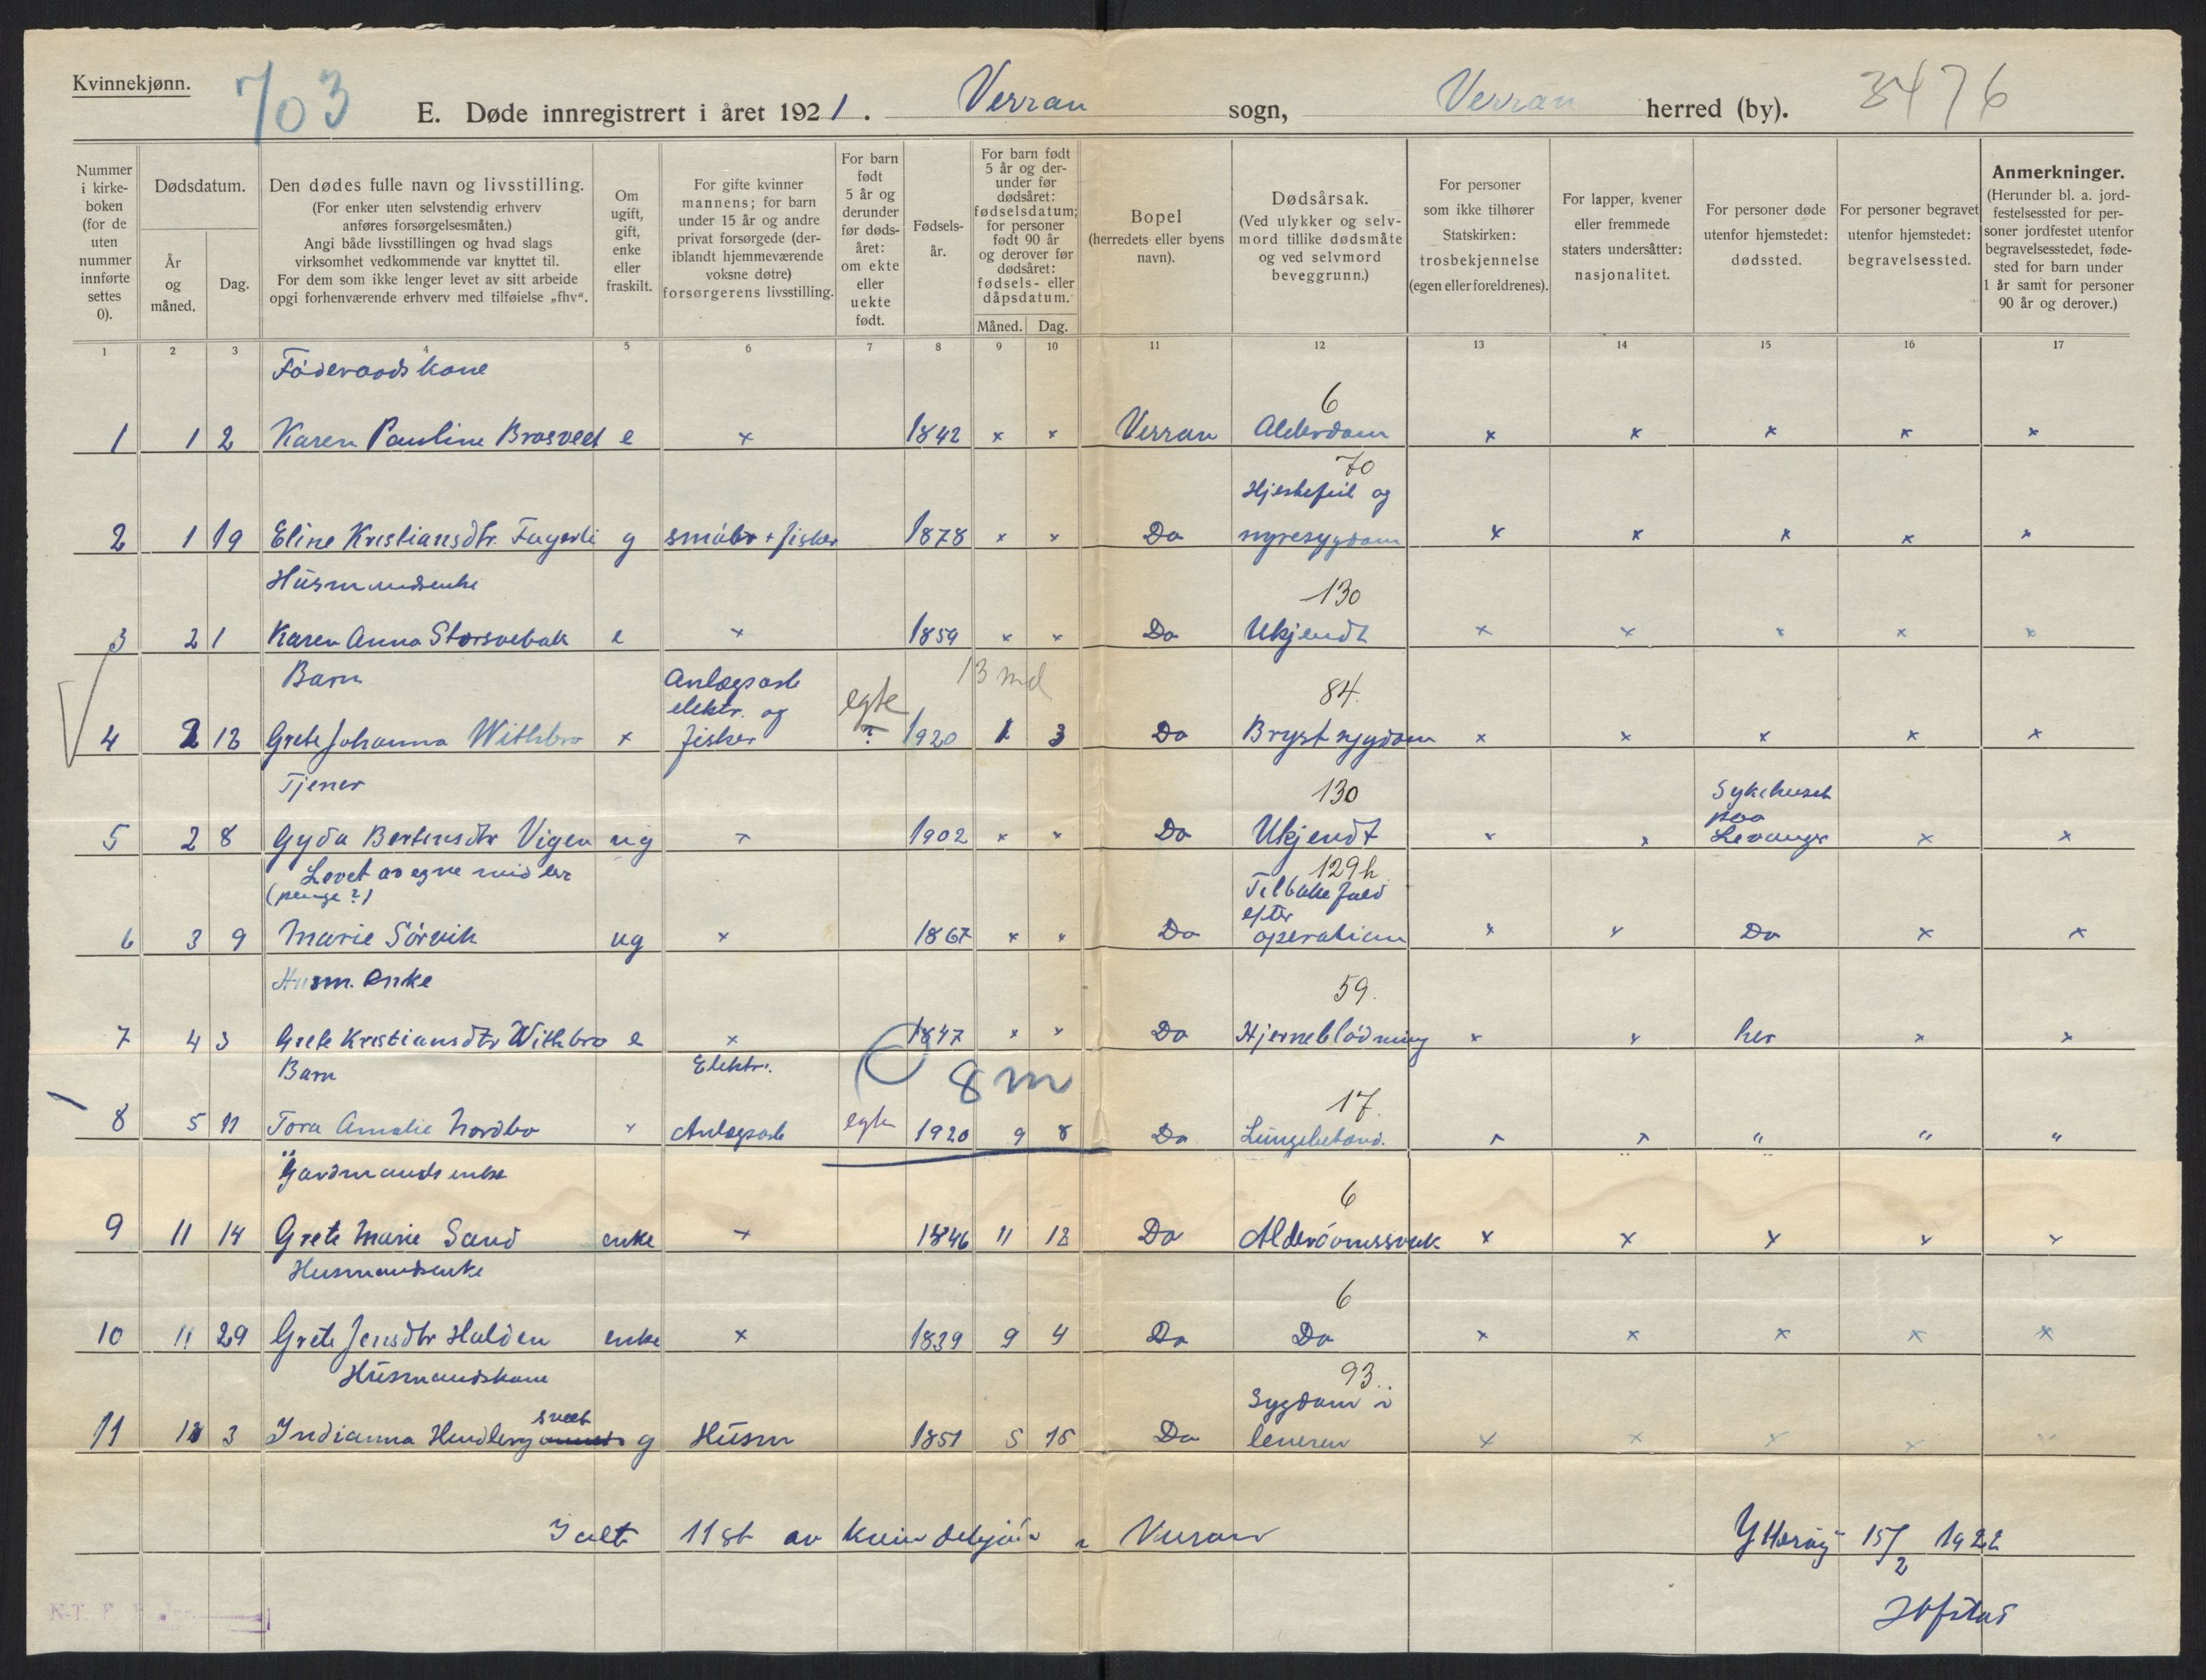 Kvinnekjønn.
703
E. Døde innregistrert i året 1921. Verran sogn, Verran herred (by).
3476
Nummer i kirkeboken (for de uten nummer innførte settes 0).
Dødsdatum.
År og måned.
Dag.
Den dødes fulle navn og livsstilling.
(For enker uten selvstendig erhverv
anføres forsørgelsesmåten.)
Angi både livsstillingen og hvad slags
virksomhet vedkommende var knyttet til.
For dem som ikke lenger levet av sitt arbeide
opgi forhenværende erhverv med tilføielse „fhv“.
Om ugift, gift, enke eller fraskilt.
For gifte kvinner
mannens; for barn
under 15 år og andre
privat forsørgede (der-
iblandt hjemmeværende
voksne døtre)
forsørgerens livsstilling.
For barn født
5 år og
derunder
før døds-
året:
om ekte
eller
uekte
født.
Fødsels-
år.
For barn født
5 år og der-
under før
dødsåret:
fødselsdatum;
for personer
født 90 år
og derover før
dødsåret:
fødsels- eller
dåpsdatum.
Måned. Dag.
Bopel
(herredets eller byens
navn).
Dødsårsak.
(Ved ulykker og selv-
mord tillike dødsmåte
og ved selvmord
beveggrunn.)
For personer
som ikke tilhører
Statskirken:
trosbekjennelse
(egen eller foreldrenes).
For lapper, kvener
eller fremmede
staters undersåtter:
nasjonalitet.
For personer døde
utenfor hjemstedet:
dødssted.
For personer begravet
utenfor hjemstedet:
begravelsessted.
Anmerkninger.
(Herunder bl. a. jord-
festelsessted for per-
soner jordfestet utenfor
begravelsesstedet, føde-
sted for barn under
1 år samt for personer
90 år og derover.)
1 2 3 4 5 6 7 8 9 10 11 12 13 14 15 16 17
Føderaadskone
6
1 1 2 Karen Pauline e x 1842 x x Verran Alderdom x x x x x
70
Hjertefeil og
2 1 19 Eline Kristiansdtr. Fagerli g småbr + fisker 1878 x x Do nyresygdom x x x x x
Husmandsenke
130
3 2 1 Karen Anna e x 1859 x x Do Ukjendt x x x x x
Barn Anlægsarb 13 md 84.
elektr. og egte
4 2 12 Grete Johanna Withbro x fisker ? 1920 1 3 Do Brystsygdom x x x x x
Tjener 130 Sykehuset
paa
5 2 8 Gyda Vigen ug x 1902 x x Do Ukjendt x x Levanger x x
Levet av egne midler 129h
(penge?) Tilbakefald
efter
6 3 9 Marie Sörvik ug x 1867 x x Do operation x x Do x x
Husm. Enke 59.
7 4 3 Grete Kristiansdtr Withbro e x 1847 x x Do Hjerneblödning x x her x x
Barn Elektr. 8 m
17.
8 5 11 Tora Amalie Nordbo x Anlægsarb egte 1920 9 8 Do Lungebetænd. x x " " "
Gardmandsenke
6
9 11 14 Grete Marie Sand enke x 1846 11 12 Do Alderdomssvak x x x x x
Husmandsenke
6
10 11 29 Grete Jensdtr Halden enke x 1839 9 4 Do Do x x x x x
Husmandskone 93.
Sygdom i
11 12 3 Indianna g Husm 1851 5 15 Do leveren x x x x x
Ialt 11 st av kvindekjön i Verran
Ytteröy 15/2 1922